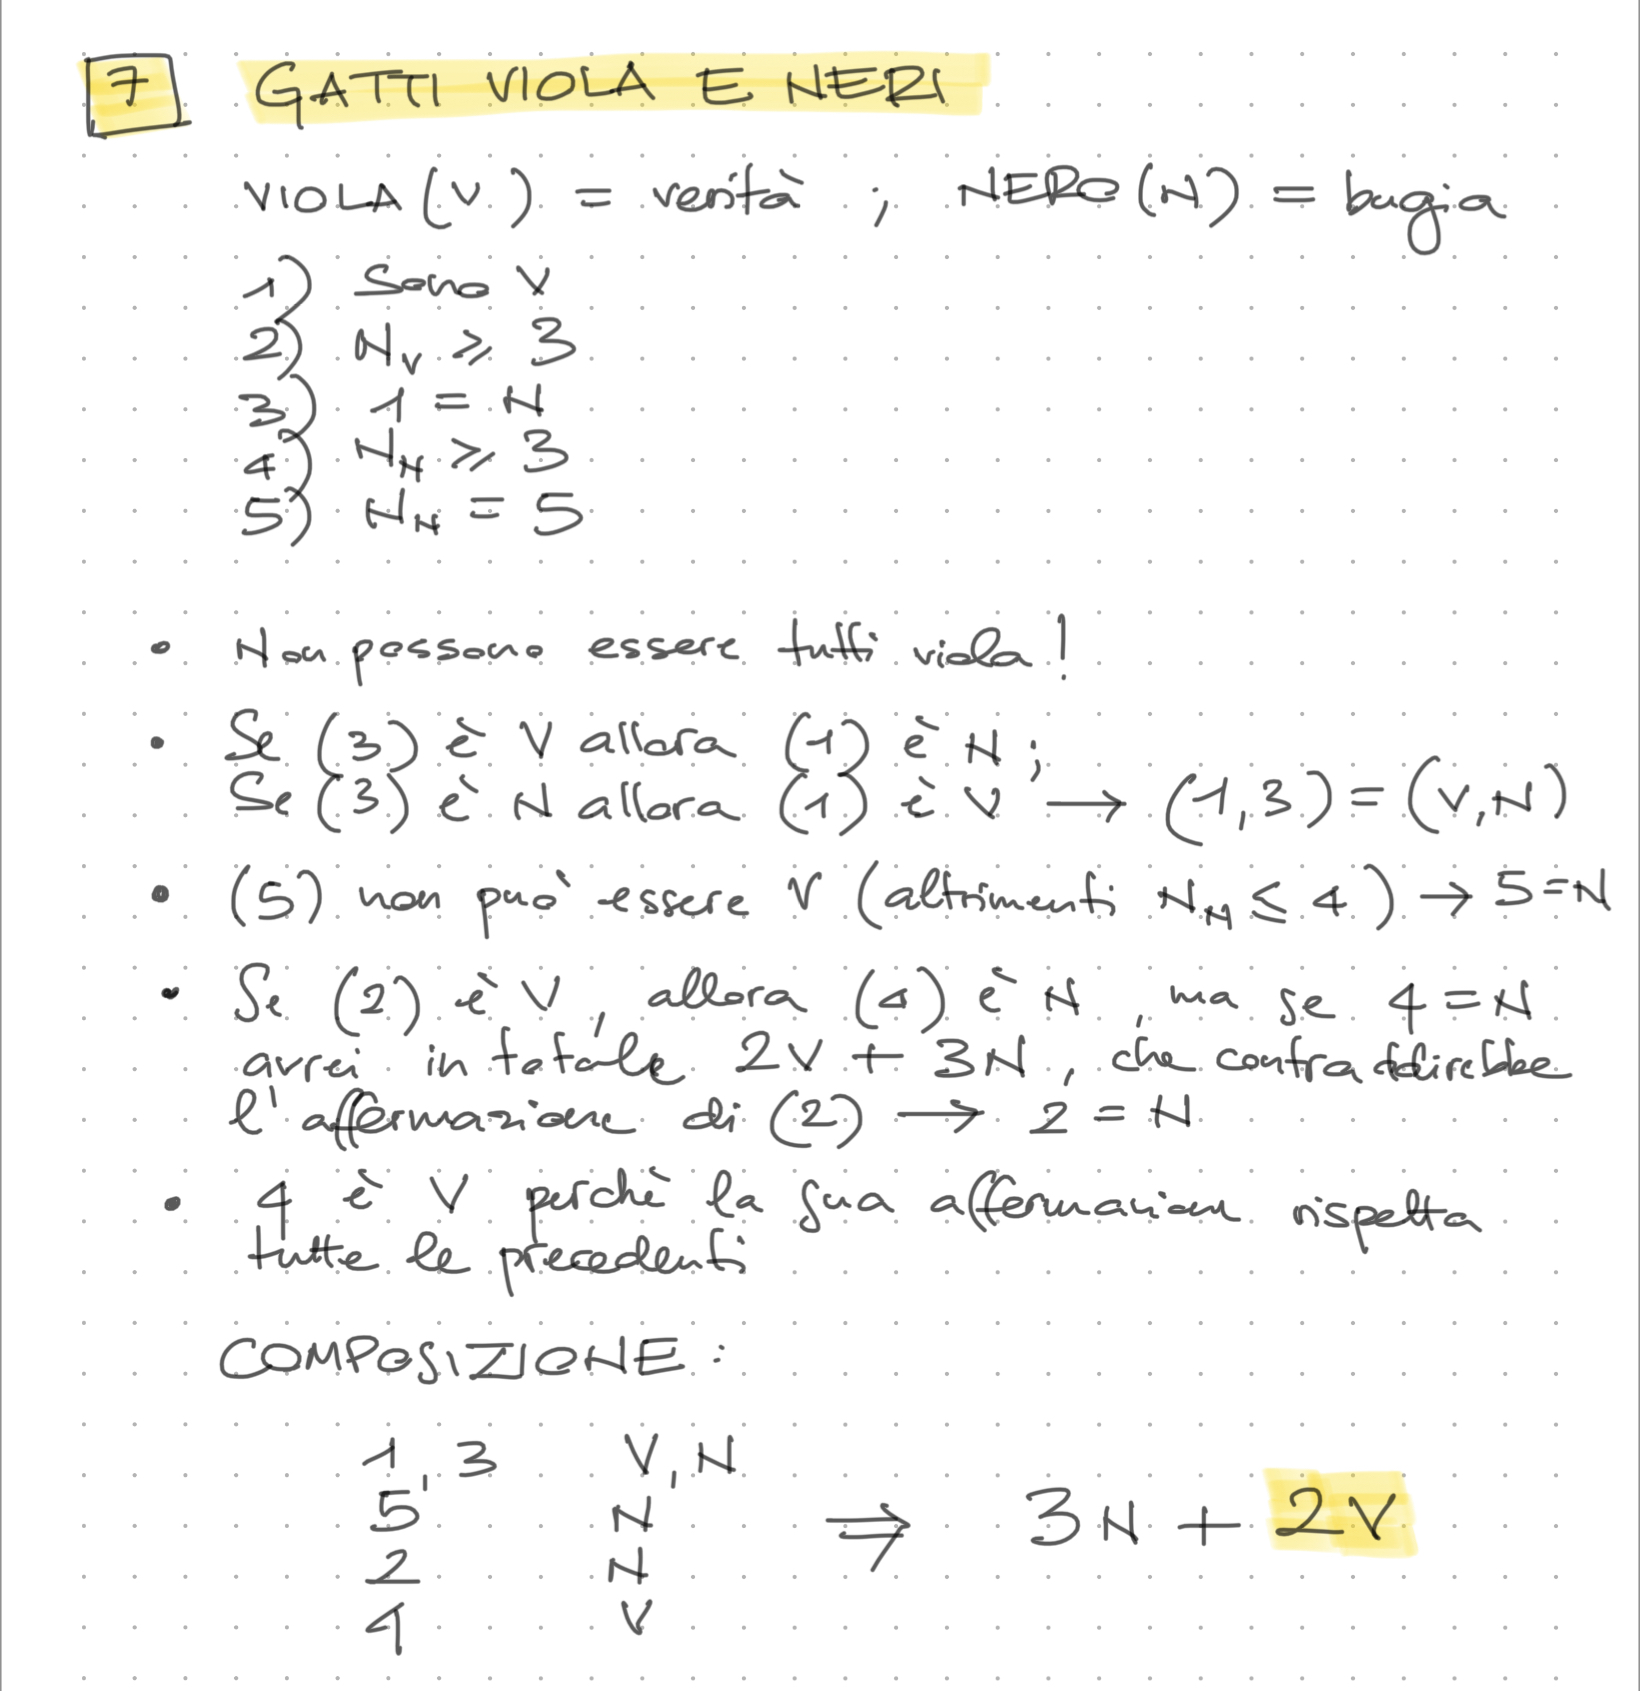 7 GATTI VIOLA E NERI
VIOLA (V) = verità ; NERO (N) = bugia
1) Sono V
2) N_V ⩾ 3
3) 1 = N
4) N_N ⩾ 3
5) N_N = 5
• Non possono essere tutti viola!
• Se (3) è V allora (1) è N;
Se (3) è N allora (1) è V → (1,3) = (V,N)
• (5) non può essere V (altrimenti N_N ≤ 4) → 5=N
• Se (2) è V, allora (4) è N, ma se 4=N
avrei in totale 2V + 3N, che contraddirebbe
l'affermazione di (2) → 2 = N
• 4 è V perchè la sua affermazion rispetta
tutte le precedenti
COMPOSIZIONE:
1, 3 V, N
5 N ⇒ 3N + 2V
2 N
4 V